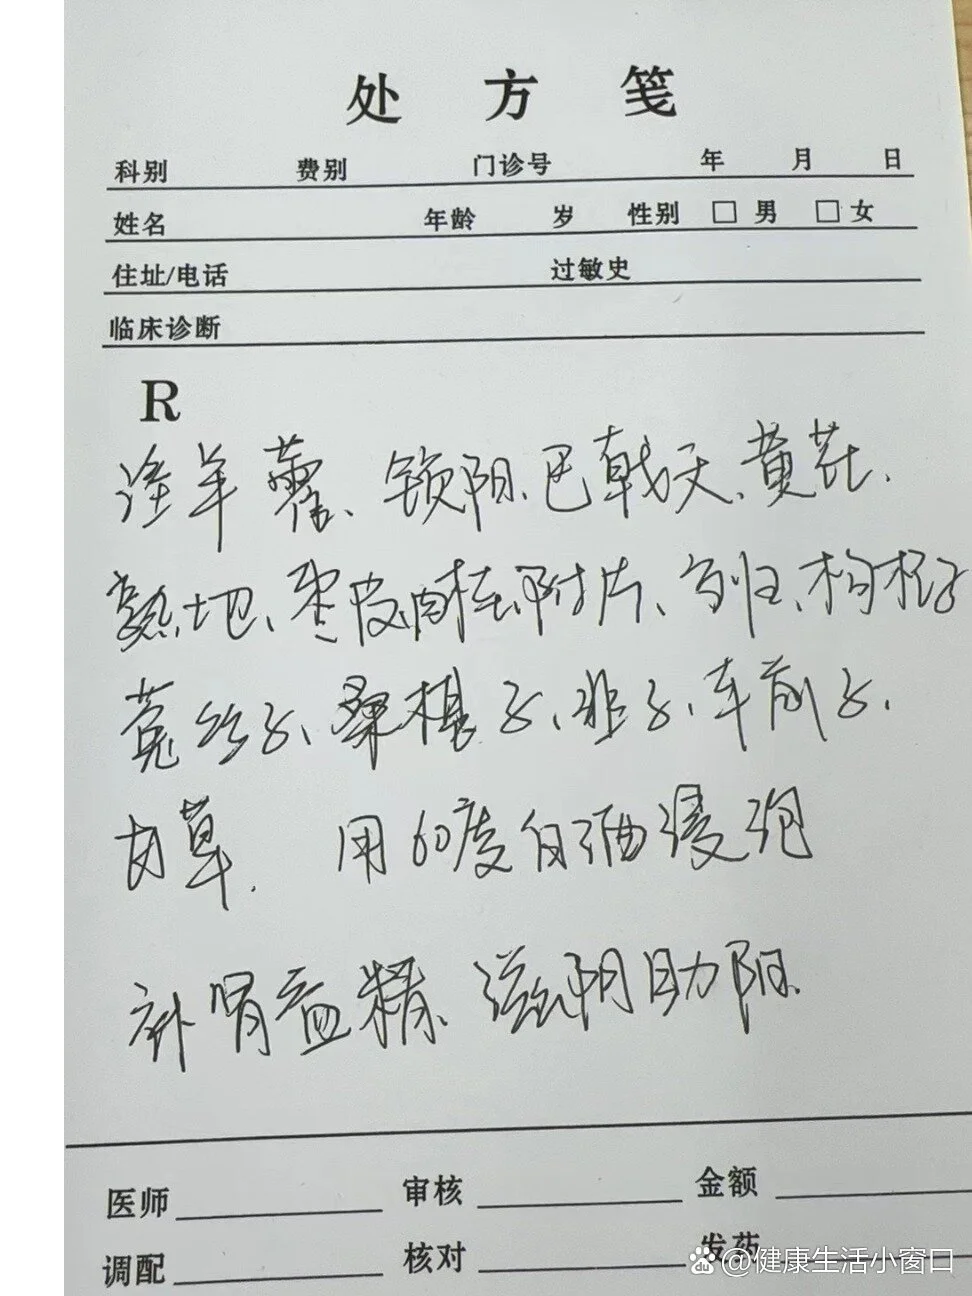 处方笺
科别 费别 门诊号 年 月 日
姓名 年龄 岁 性别 □男 □女
住址/电话 过敏史
临床诊断
R
淫羊藿、锁阳、巴戟天、黄芪、
熟地、枣皮、肉桂、附片、当归、枸杞子
菟丝子、桑椹子、韭子、车前子、
甘草. 用60度白酒浸泡
补肾益精、滋阴助阳.
医师 审核 金额
调配 核对 发药
@健康生活小窗口